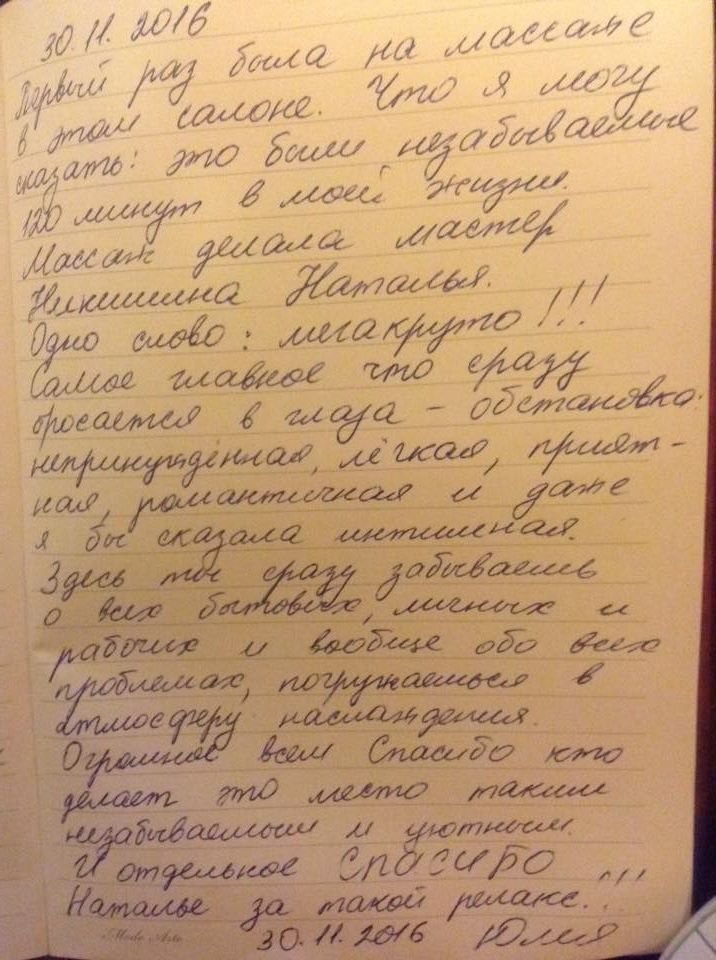 30.11.2016
Первый раз была на массаже
в этом салоне. Что я могу
сказать: это были незабываемые
120 минут в моей жизни.
Массаж делала мастер
Наталья.
Одно слово: мегакруто!!!
Самое главное что сразу
бросается в глаза - обстановка:
непринуждённая, лёгкая, прият-
ная, романтичная и даже
я бы сказала интимная.
Здесь ты сразу забываешь
о всех бытовых, личных и
рабочих и вообще обо всех
проблемах, погружаешься в
атмосферу наслаждения.
Огромное всем Спасибо кто
делает это место таким
незабываемым и уютным.
И отдельное СПАСИБО
Наталье за такой релакс!!!
30.11.2016 Юлия